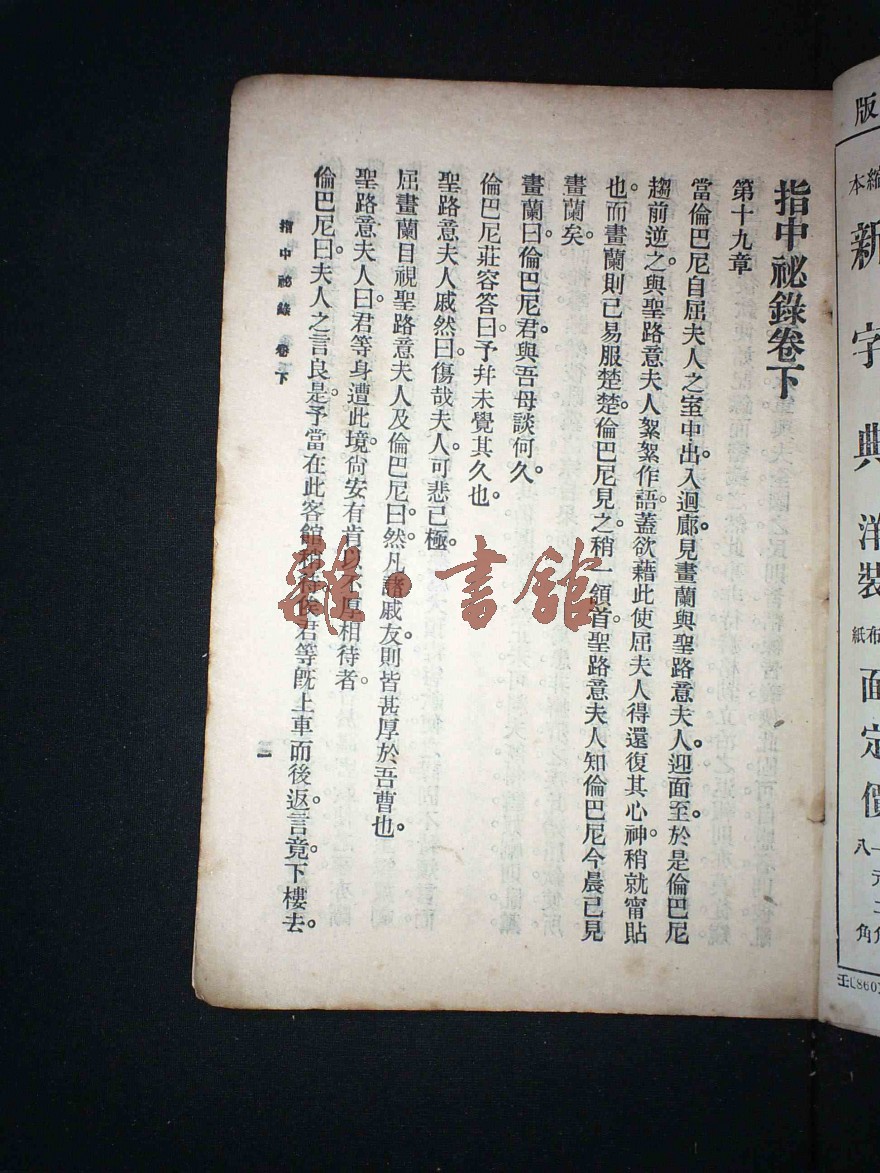 版
縮本
新字典
洋裝
布紙
面定價
一元二角
八角
王(860)
指中祕錄卷下
第十九章
當倫巴尼自屈夫人之室中出。入迴廊。見畫蘭與聖路意夫人。迎面至。於是倫巴尼
趨前逆之。與聖路意夫人絮絮作語。蓋欲藉此使屈夫人得還復其心神。稍就甯貼
也。而畫蘭則已易服楚楚。倫巴尼見之。稍一頷首。聖路意夫人知倫巴尼今晨已見
畫蘭矣。
畫蘭曰。倫巴尼君。與吾母談何久。
倫巴尼莊容答曰。予幷未覺其久也。
聖路意夫人戚然曰。傷哉夫人。可悲已極。
屈畫蘭目視聖路意夫人及倫巴尼曰。然。凡諸戚友。則皆甚厚於吾曹也。
聖路意夫人曰。君等身遭此境。尙安有肯以不厚相待者。
倫巴尼曰。夫人之言良是。予當在此客館稍待。俟君等旣上車而後返。言竟。下樓去。
指中祕錄 卷下
一
雜·書館